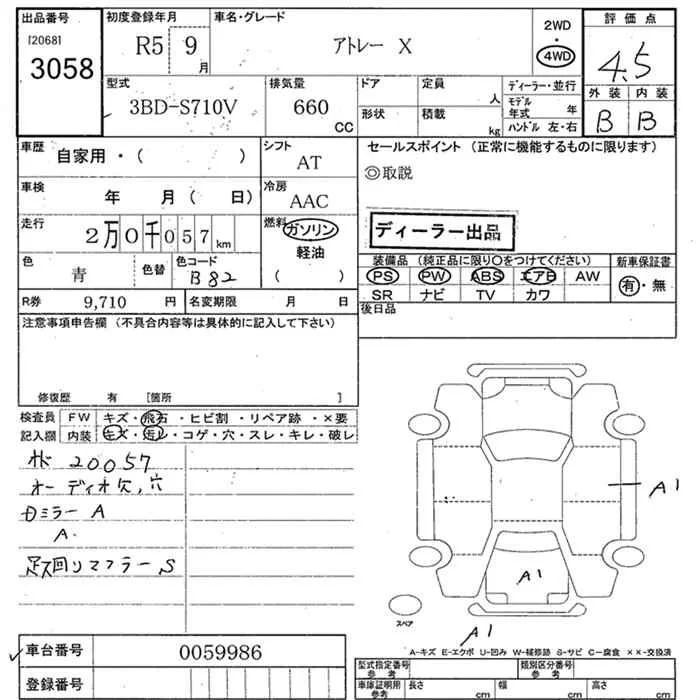 出品番号 初度登録年月 車名・グレード 2WD 評価点
[2068]
3058 R5 9月 アトレー X ・ 4WD 4.5
型式 排気量 ドア 定員 人 ディーラー・並行 外装 内装
3BD-S710V 660 CC 形状 積載 kg モデル年式 年 B B
ハンドル 左・右
車歴 自家用・( ) シフト AT セールスポイント (正常に機能するものに限ります)
◎取説
車検 年 月( 日) 冷房 AAC
走行 2万0千057km 燃料 ガソリン ディーラー出品
軽油
( )
色 青 色替 色コード B82 装備品(純正品に限り○をつけてください) 新車保証書
PS PW ABS エアB AW 有・無
R券 9,710 円 名変期限 月 日 SR ナビ TV カワ
注意事項申告欄 (不具合内容等は具体的に記入して下さい) 後日品
修復歴 有 [箇所 ]
検査員 FW キズ・飛石・ヒビ割・リペア跡・×要
記入欄 内装 キズ・汚レ・コゲ・穴・スレ・キレ・破レ
20057
オーディオ欠,穴
ミラー A
A
足回りマフラーS
A1
A1
A1
スペア
A-キズ E-エクボ U-凹み W-補修跡 S-サビ C-腐食 ××-交換済
車台番号 0059986 型式指定番号 参考 類別区分番号 参考
登録番号 車庫証明用 参考 長さ cm 幅 cm 高さ cm